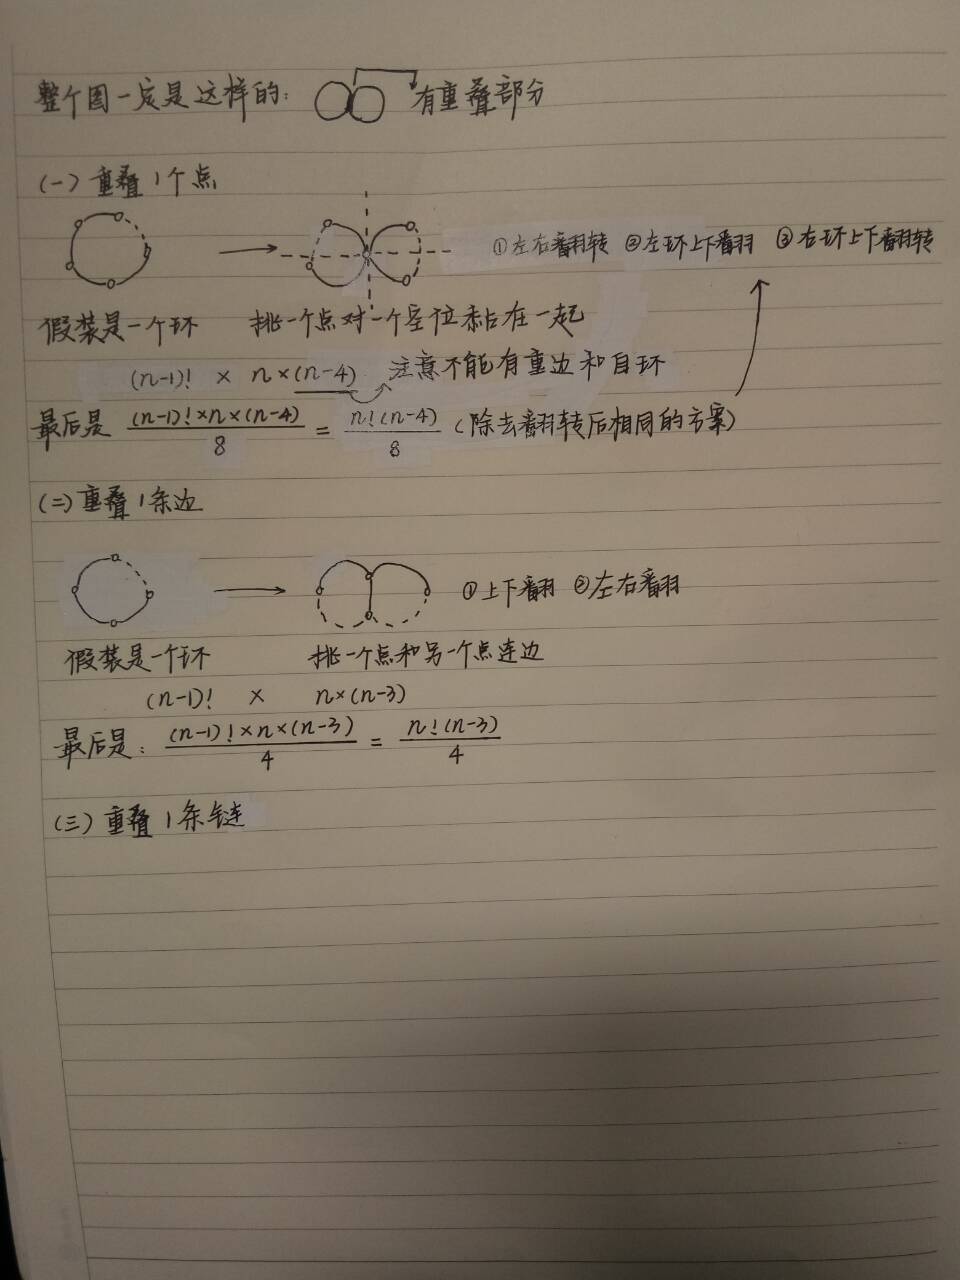 整个图一定是这样的: 有重叠部分
(一) 重叠1个点
①左右翻转 ②左环上下翻羽 ③右环上下翻转
假装是一个环 挑一个点对一个空位黏在一起
(n-1)! × n×(n-4) 注意不能有重边和自环
最后是 (n-1)!×n×(n-4)/8 = n!(n-4)/8 (除去翻转后相同的方案)
(二) 重叠1条边
①上下翻羽 ②左右翻羽
假装是一个环 挑一个点和另一个点连边
(n-1)! × n×(n-3)
最后是: (n-1)!×n×(n-3)/4 = n!(n-3)/4
(三) 重叠1条链